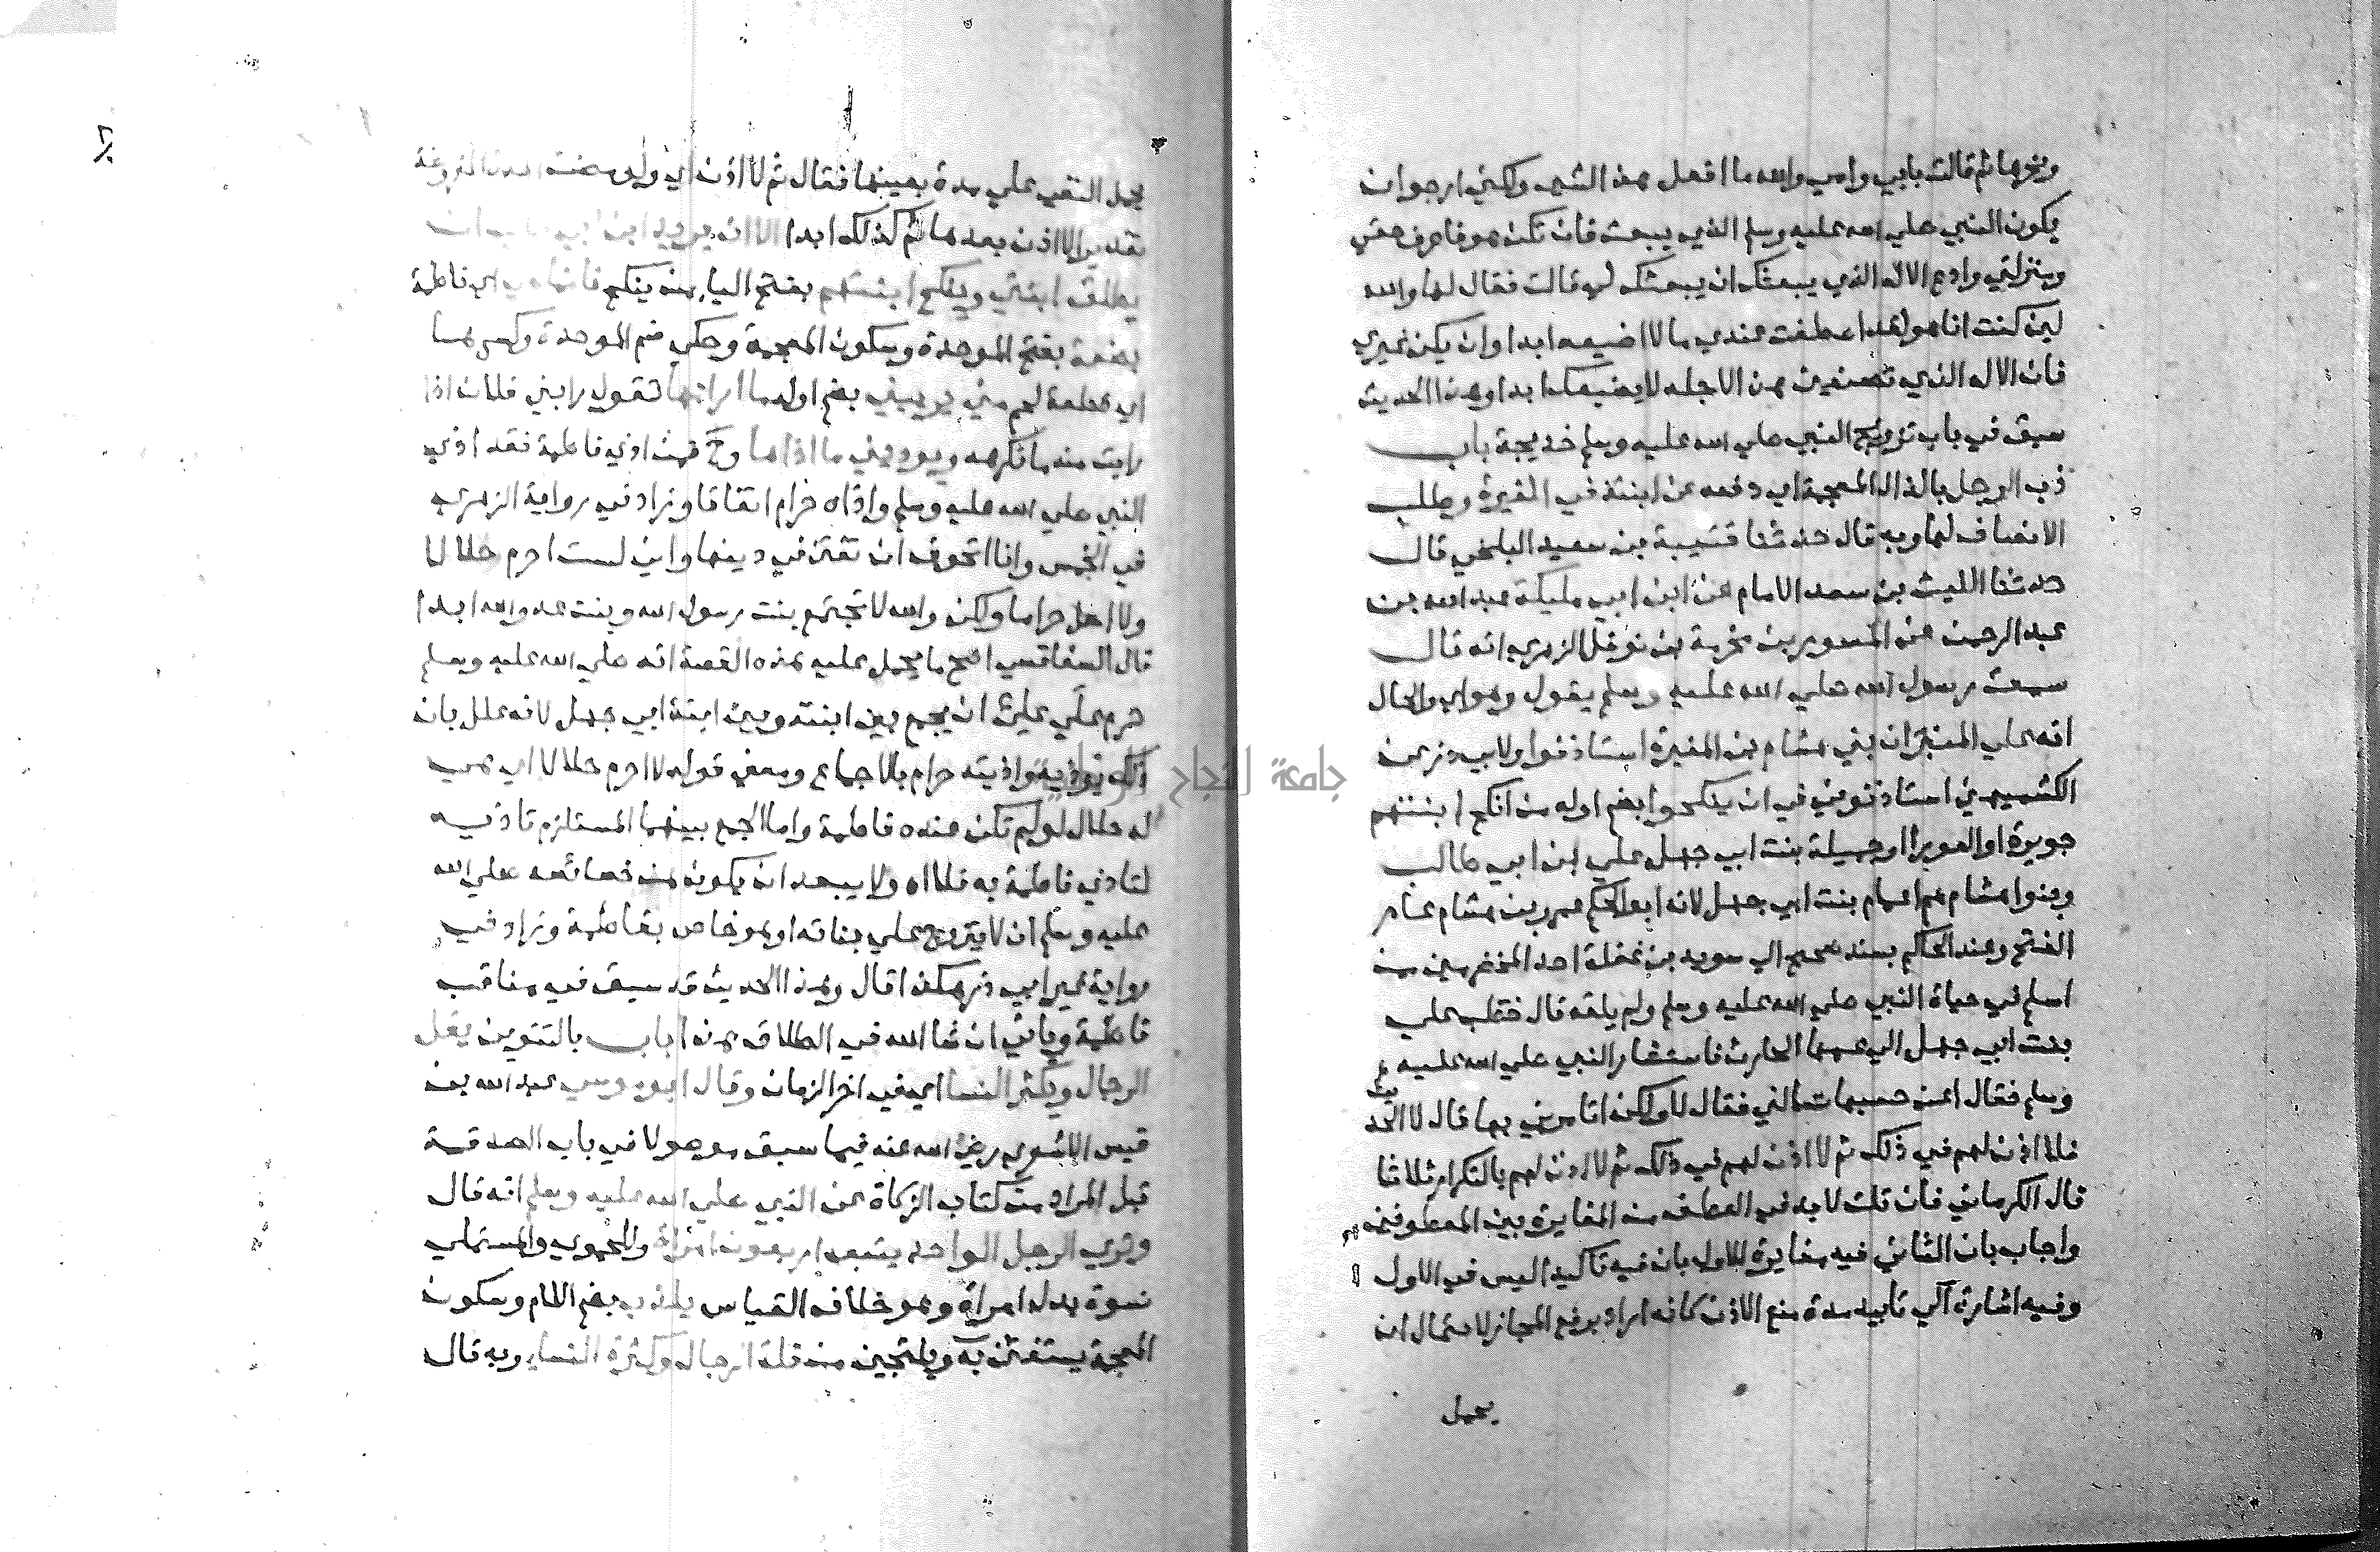 ونحرها ثم قالت بابي وامي والله ما افعل هذا الشي ولكني ارجوا ان
يكون النبي صلي الله عليه وسلم الذي يبعث فان تكن هو فاعرف حقي
ومنزلتي وادع الاله الذي يبعثك ان يبعثك لي قالت فقال لها والله
لين كنت انا هو لقد اصطنعت عندي ما لا اضيعه ابدا وان يكن غيري
فان الاله الذي تصنعين هذا لاجله لا يضيعك ابدا وهذا الحديث
سبق في باب تزويج النبي صلي الله عليه وسلم خديجة باب
ذب الرجل بالذال المعجمة اي دفعه عن ابنته في الغيرة وطلب
الانصاف لها وبه قال حدثنا قتيبة بن سعيد البلخي قال
حدثنا الليث بن سعد الامام عن ابن ابي مليكة عبد الله بن
عبد الرحمن عن المسور بن مخرمة بن نوفل الزهري انه قال
سمعت رسول الله صلي الله عليه وسلم يقول وهو اي والحال
انه علي المنبر ان بني هشام بن المغيرة استاذنوا ولابي ذر عن
الكشميهني استاذنوني في ان ينكحوا بضم اوله من انكح ابنتهم
جويرة او العورا او جميلة بنت ابي جهل علي ابن ابي طالب
وبنوا هشام هم اعمام بنت ابي جهل لانه ابو الحكم عمرو بن هشام عام
الفتح وعند الحاكم بسند صحيح الي سويد بن غفلة احد المخضرمين من
اسلم في حياة النبي صلي الله عليه وسلم ولم يلقه قال خطب علي
بنت ابي جهل الي عمها الحارث فاستشار النبي صلي الله عليه
وسلم فقال اعن حسبها تسالني فقال لا ولكن اتامرني بها قال لا
فلا اذن لهم في ذلك ثم لا اذن لهم في ذلك ثم لا اذن لهم بالتكرار ثلاثا
قال الكرماني فان قلت لا بد في العطف من المغايرة بين المعطوفين
واجاب بان الثاني فيه مغايرة للاول بان فيه تاكيدا ليس في الاول
وفيه اشارة الي تابيد مدة منع الاذن كانه اراد رفع المجاز لاحتمال ان
يحمل
يحمل النفي علي مدة بعينها فقال ثم لا اذن اي ولو مضت المدة المفروضة
تقديرا لا اذن بعدها ثم كذلك ابدا الا ان يريد ابن ابي طالب ان
يطلق ابنتي وينكح ابنتهم بفتح اليا من ينكح فانما هي اي فاطمة
بضعة بفتح الموحدة وسكون المعجمة وحكي ضم الموحدة وكسرها
اي قطعة لحم مني يريبني بضم اوله ما ارابها تقول رابني فلان اذا
رايت منه ما تكرهه ويوذيني ما اذاها وح فمن اذي فاطمة فقد اذي
النبي صلي الله عليه وسلم واذاه حرام اتفاقا وزاد في رواية الزهري
في الخمس وانا اتخوف ان تفتن في دينها واني لست احرم حلالا
ولا احل حراما ولكن والله لا تجتمع بنت رسول الله وبنت عدو الله ابدا
قال السفاقسي اصح ما يحمل عليه هذه القصة انه صلي الله عليه وسلم
حرم علي علي ان يجمع بين ابنته وبين ابنة ابي جهل لانه علل بان
ذلك يوذيه واذيته حرام بالاجماع ومعني قوله لا احرم حلالا اي هي
له حلال لو لم تكن عنده فاطمة واما الجمع بينهما المستلزم تاذيه
لتاذي فاطمة به فلا اه ولا يبعد ان يكون من خصائصه صلي الله
عليه وسلم ان لا يتزوج علي بناته او هو خاص بفاطمة وزاد في
رواية غير ابي ذر هكذا قال وهذا الحديث قد سبق في مناقب
فاطمة وياتي ان شا الله في الطلاق هذا باب بالتنوين يقل
الرجال ويكثر النسا اي في اخر الزمان وقال ابو موسي عبد الله بن
قيس الاشعري رضي الله عنه فيما سبق موصولا في باب الصدقة
قبل الرد من كتاب الزكاة عن النبي صلي الله عليه وسلم انه قال
وتري الرجل الواحد يتبعه اربعون امراة وللحموي والمستملي
نسوة بدل امراة وهو خلاف القياس يلذن به بضم اللام وسكون
المعجمة يستغثن به ويلتجين من قلة الرجال وكثرة النساء وبه قال